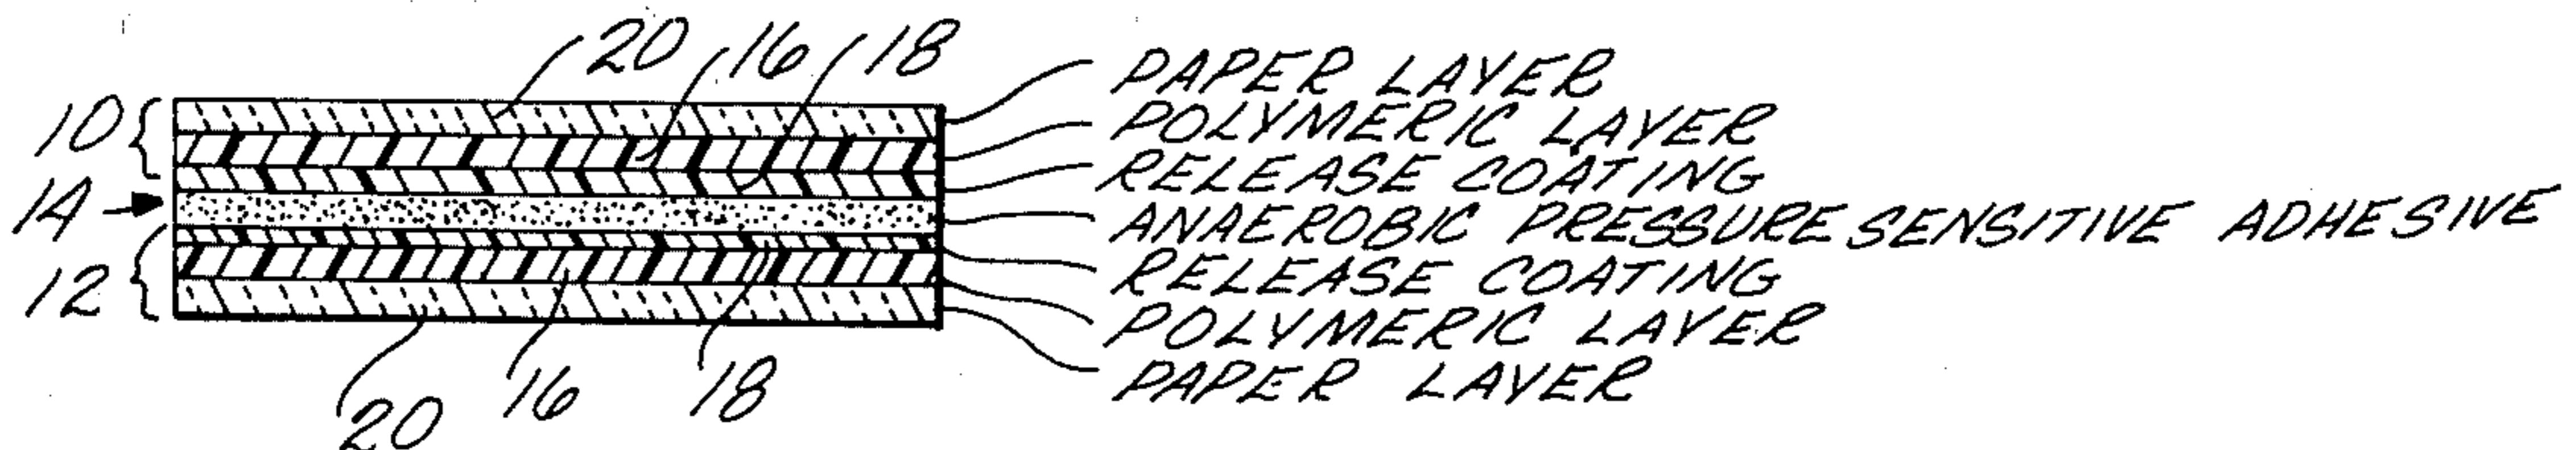 20 16 18
PAPER LAYER
10 POLYMERIC LAYER
RELEASE COATING
14 ANAEROBIC PRESSURE SENSITIVE ADHESIVE
12 RELEASE COATING
POLYMERIC LAYER
PAPER LAYER
20 16 18